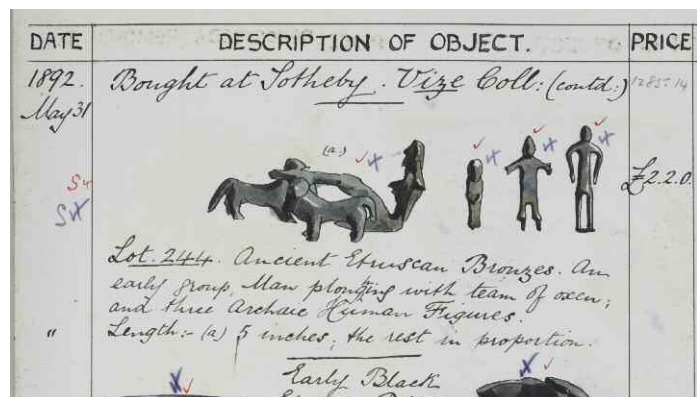 DATE DESCRIPTION OF OBJECT. PRICE
1892. Bought at Sotheby. Vize Coll: (contd:) 1285.14
May 31
(a.)
£2.2.0.
Lot. 244. Ancient Etruscan Bronzes. An
early group, Man plonging with team of oxen;
and three Archaic Human Figures.
" Length:- (a) 5 inches; the rest in proportion.
Early Black